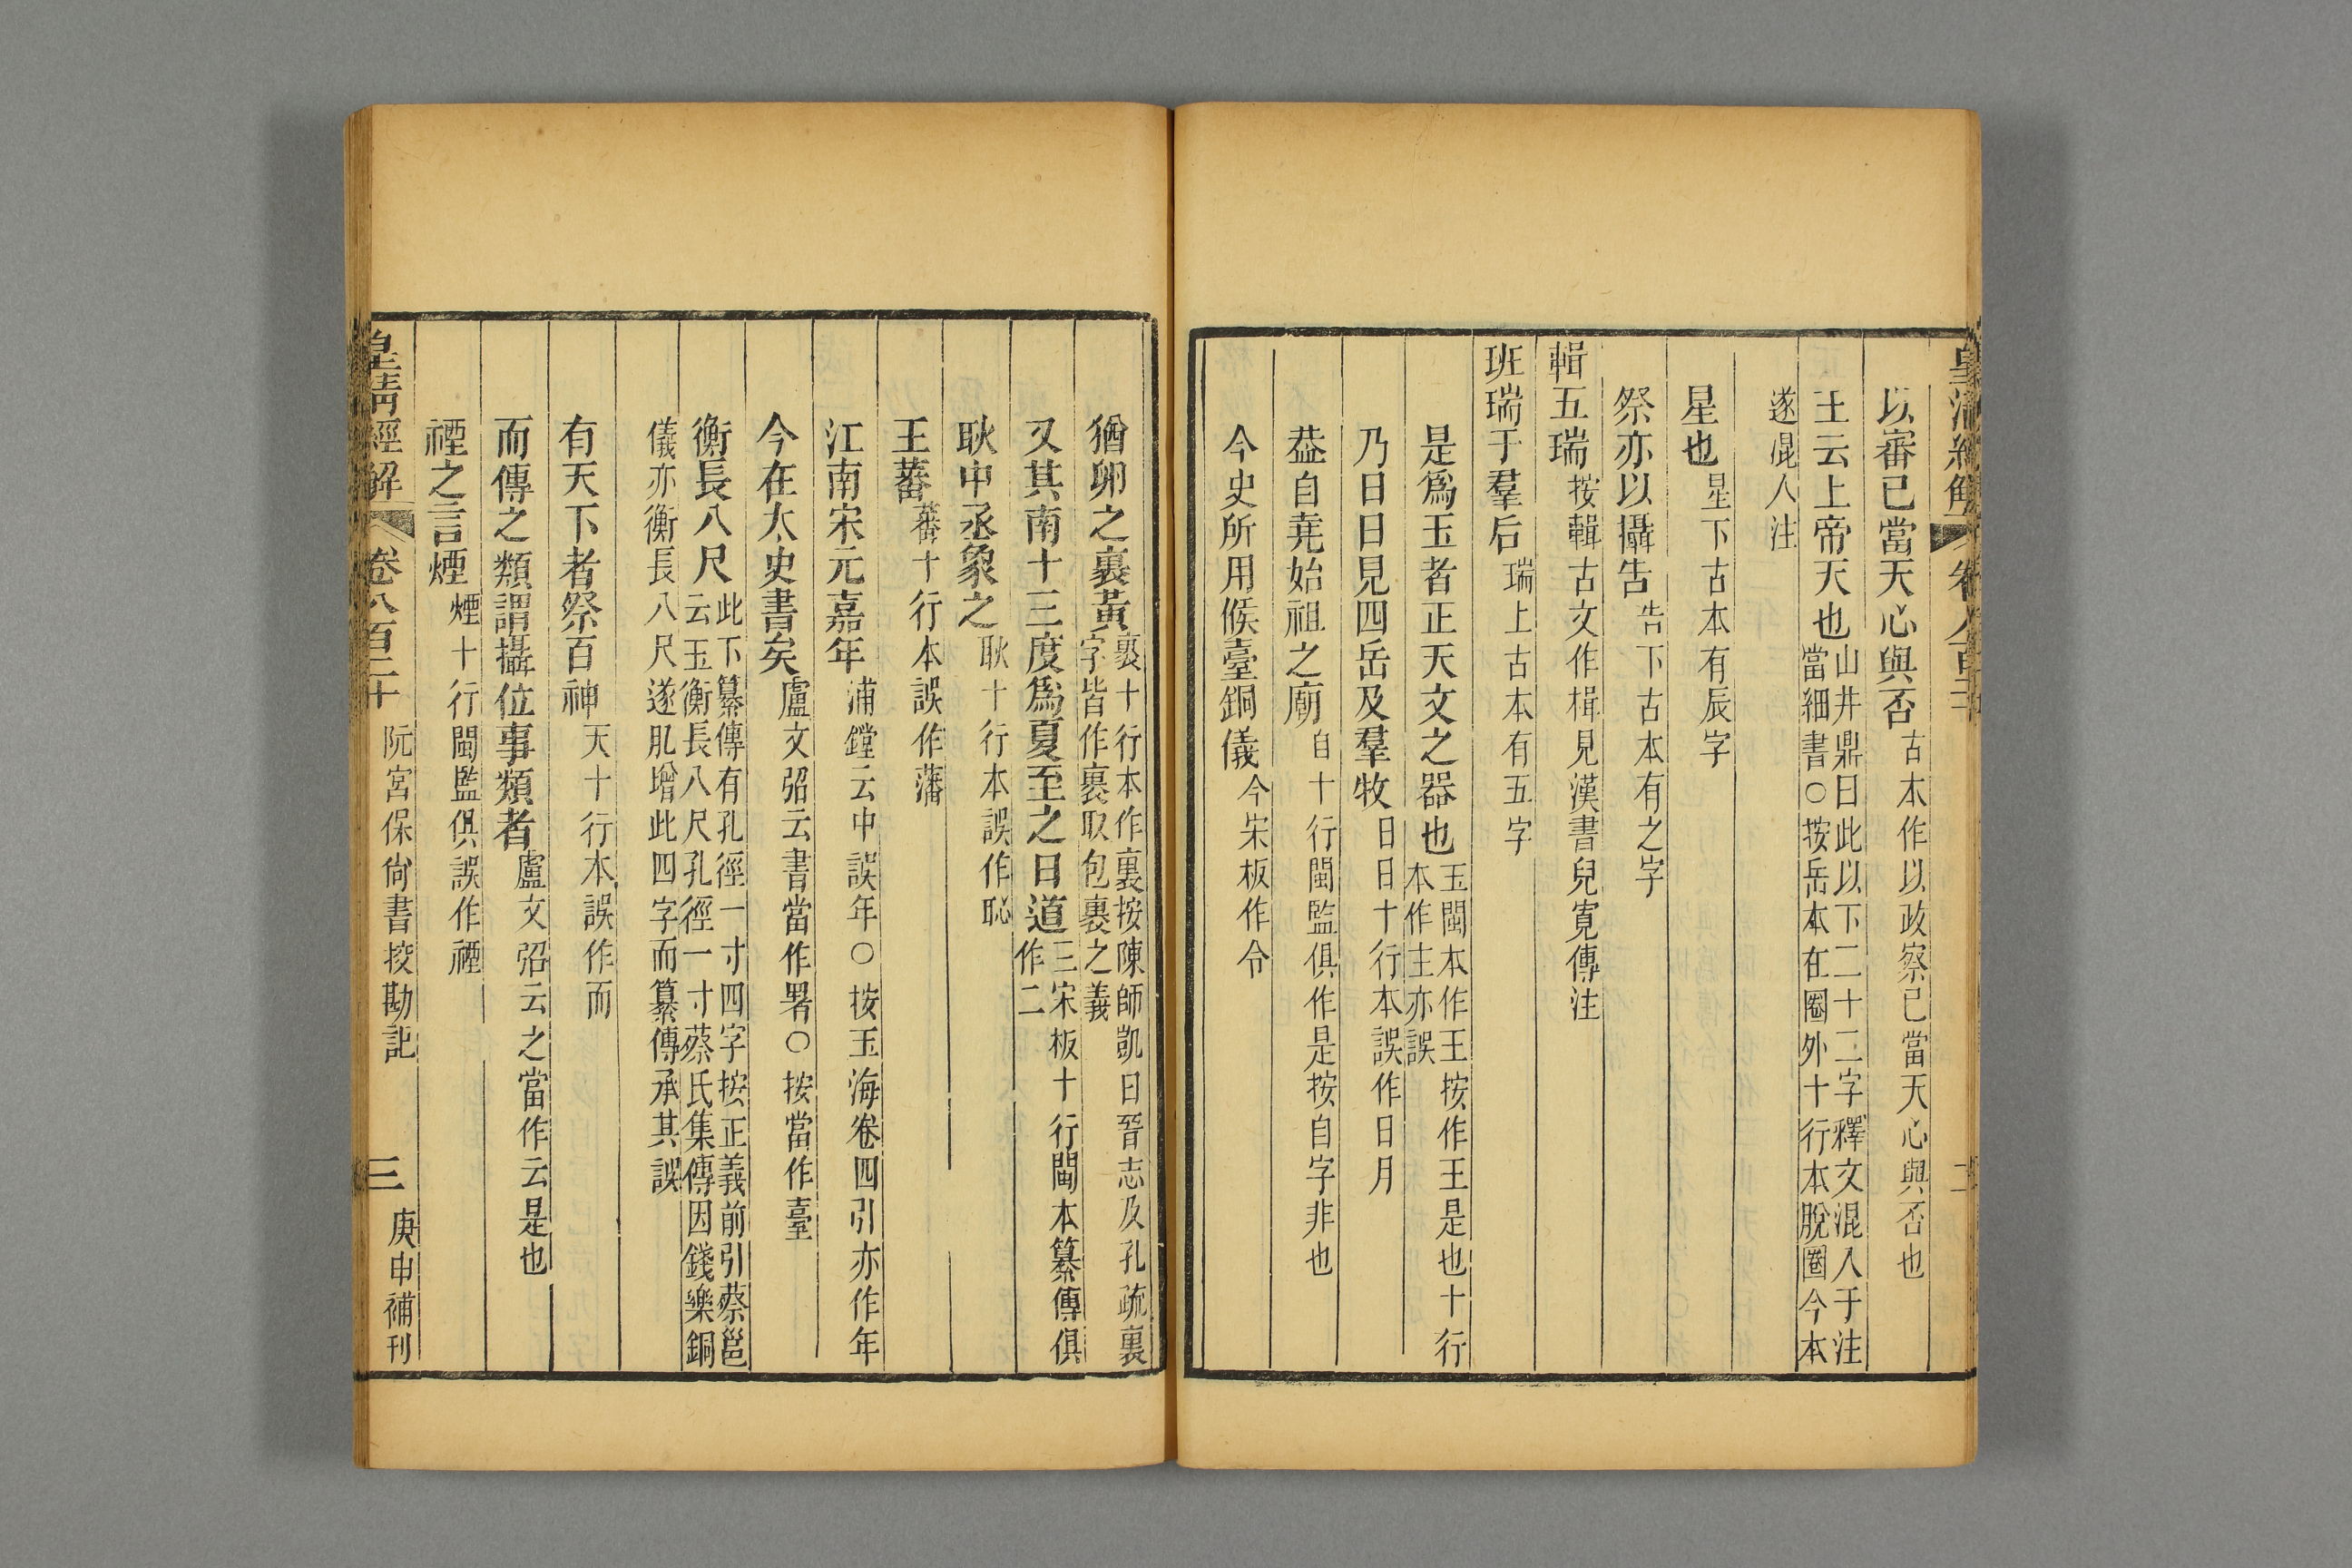 以審已當天心與否古本作以政察已當天心與否也
王云上帝天也山井鼎曰此以下二十二字釋文混入于注
當細書○按岳本在圈外十行本脫圈今本
遂混入注
星也星下古本有辰字
祭亦以攝告告下古本有之字
輯五瑞按輯古文作楫見漢書兒寬傳注
班瑞于羣后瑞上古本有五字
是爲玉者正天文之器也玉閩本作王按作王是也十行
本作主亦誤
乃日日見四岳及羣牧日日十行本誤作日月
葢自堯始祖之廟自十行閩監俱作是按自字非也
今史所用候臺銅儀今宋板作令
猶卵之裏黃裏十行本作裹按陳師凱曰晉志及孔疏裏
字皆作裹取包裹之義
又其南十三度爲夏至之日道三宋板十行閩本纂傳俱
作二
耿中丞象之耿十行本誤作恥
王蕃蕃十行本誤作藩
江南宋元嘉年浦鏜云中誤年○按玉海卷四引亦作年
今在太史書矣盧文弨云書當作署○按當作臺
衡長八尺此下纂傳有孔徑一寸四字按正義前引蔡邕
云玉衡長八尺孔徑一寸蔡氏集傳因錢樂銅
儀亦衡長八尺遂肊增此四字而纂傳承其誤
有天下者祭百神天十行本誤作而
而傳之類謂攝位事類者盧文弨云之當作云是也
禋之言煙煙十行閩監俱誤作禋
皇清經解 卷八百二十 阮宮保尙書挍勘記 三 庚申補刊